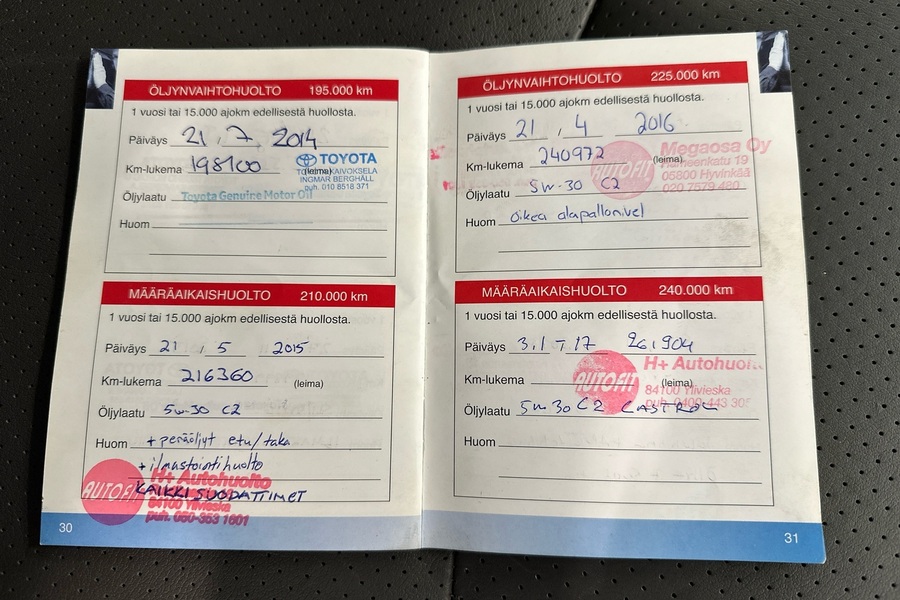 ÖLJYNVAIHTOHUOLTO 195.000 km
1 vuosi tai 15.000 ajokm edellisestä huollosta.
Päiväys 21 . 7 2014
Km-lukema 198100 (leima)
TOYOTA
KAIVOKSELA
INGMAR BERGHÄLL
puh. 010 8518 371
Öljylaatu Toyota Genuine Motor Oil
Huom
MÄÄRÄAIKAISHUOLTO 210.000 km
1 vuosi tai 15.000 ajokm edellisestä huollosta.
Päiväys 21 . 5 2015
Km-lukema 216360 (leima)
Öljylaatu 5w-30 C2
Huom + peräöljyt etu/taka
+ ilmastointihuolto
KAIKKI SUODATTIMET
AUTOFIT
H+ Autohuolto
84100 Ylivieska
puh. 050-353 1601
30
ÖLJYNVAIHTOHUOLTO 225.000 km
1 vuosi tai 15.000 ajokm edellisestä huollosta.
Päiväys 21 . 4 2016
Km-lukema 240972 (leima)
AUTOFIT
Megaosa Oy
Hämeenkatu 19
05800 Hyvinkää
020 7579 480
Öljylaatu 5w-30 C2
Huom Oikea alapallonivel
MÄÄRÄAIKAISHUOLTO 240.000 km
1 vuosi tai 15.000 ajokm edellisestä huollosta.
Päiväys 3.1 - 17 26.904
Km-lukema (leima)
AUTOFIT
H+ Autohuol
84100 Ylivieska
puh. 0400-443 30
Öljylaatu 5w 30 C2 CASTROL
Huom
31